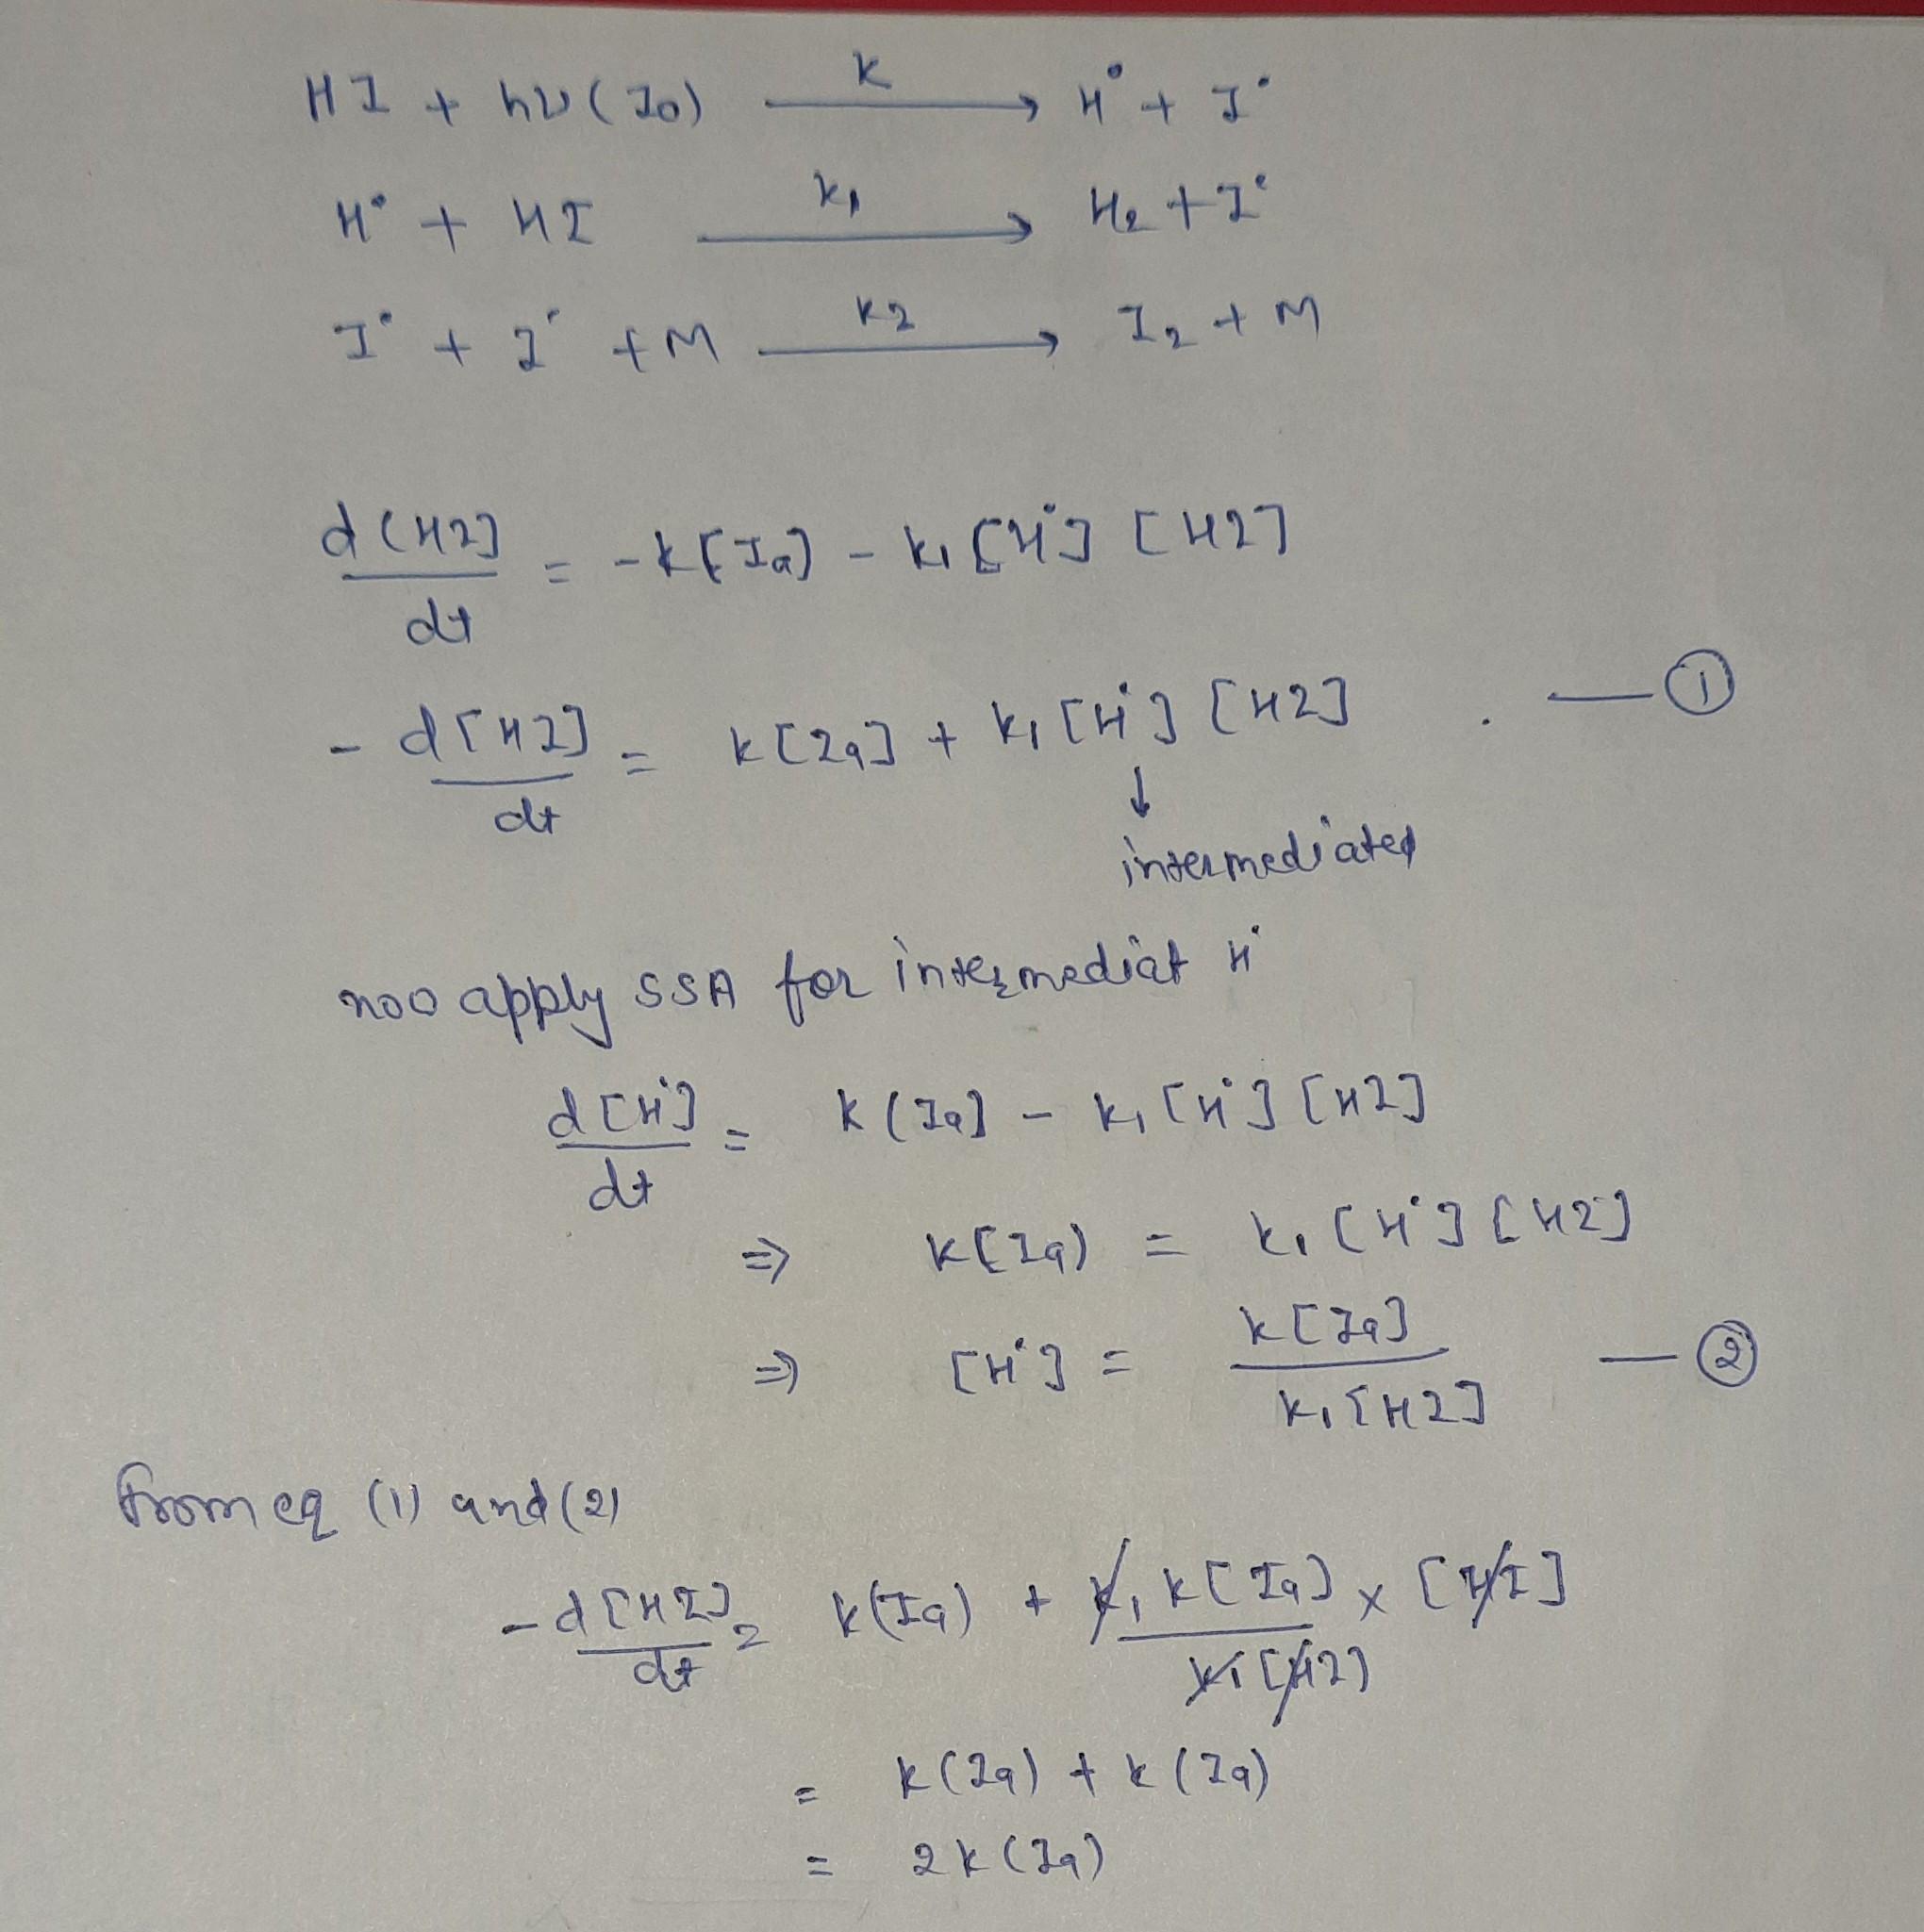 HI + hν(Ia) —k→ H• + I•
H• + HI —k1→ H2 + I•
I• + I• + M —k2→ I2 + M
d[HI]/dt = -k[Ia] - k1[H•][HI]
-d[HI]/dt = k[Ia] + k1[H•][HI] . — ①
↓
intermediated
now apply SSA for intermediat H•
d[H•]/dt = k(Ia] - k1[H•][HI]
⇒ k[Ia) = k1[H•][HI]
⇒ [H•] = k[Ia]/k1[HI] — ②
from eq (1) and (2)
-d[HI]/dt = k(Ia) + k1 k[Ia]/k1[HI] × [HI]
= k(Ia) + k(Ia)
= 2k(Ia)